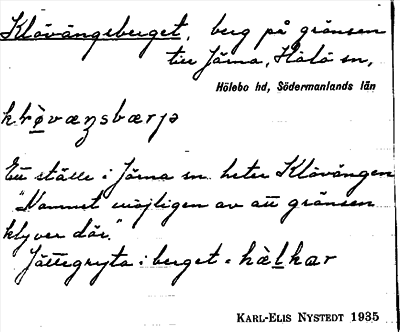 Klövängsberget, berg på gränsen
till Järna, Hölö sn,
Hölebo hd, Södermanlands län
Ett ställe i Järna sn heter Klövängen
"Namnet möjligen av att gränsen
klyver där."
Jättegryta i berget =
KARL-ELIS NYSTEDT 1935